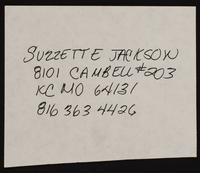 SUZZETTE JACKSON
8101 CAMBELL #203
KC MO 64131
816 363 4426